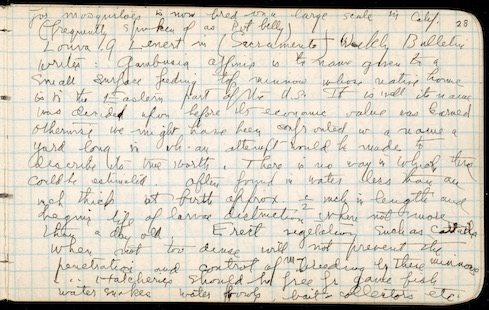 for mosquitoes is now bred on a large scale in Calif. 28
(frequently spoken of as "pot belly)
in (Sacramento) Weekly Bulletin
writes: Gambusia affinis is the name given to a
small surface feeding top minnow whose native home
is in the Eastern part of the U.S. It is well its name
was decided upon before its economic value was learned
otherwise we might have been confronted w a name a
yard long in wh. an attempt would be made to
describe its true worth. There is no way in which this
could be estimated. often found in water less than an
inch thick at birth approx ¼ inch in length and
begins life of larvae destruction when not more
than a day old Erect vegetation such as cattails
when not too dense will not prevent the
penetration and control of m breeding by these minnows
Hatcheries should be free fr game fish
water snakes water fowls, bait collectors etc.